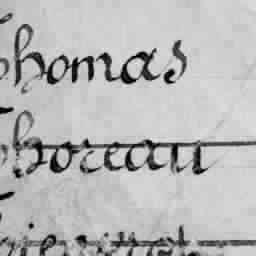 Thomas
Thoreau